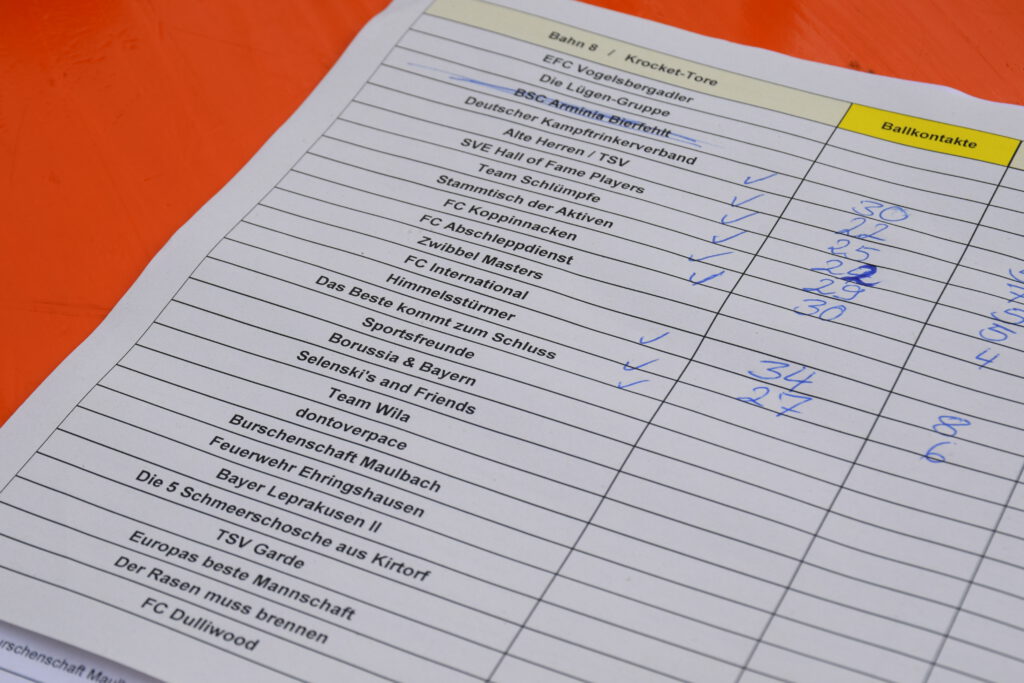 Bahn 8 / Krocket-Tore
Ballkontakte
EFC Vogelsbergadler
Die Lügen-Gruppe
BSC Arminia Bierfehlt
Deutscher Kampftrinkerverband
Alte Herren / TSV
SVE Hall of Fame Players
30
Team Schlümpfe
22
Stammtisch der Aktiven
25
FC Koppinnacken
FC Abschleppdienst
29
Zwibbel Masters
30
4
FC International
Himmelsstürmer
Das Beste kommt zum Schluss
34
8
Sportsfreunde
27
6
Borussia & Bayern
Selenski's and Friends
Team Wila
dontoverpace
Burschenschaft Maulbach
Feuerwehr Ehringshausen
Bayer Leprakusen II
Die 5 Schmeerschosche aus Kirtorf
TSV Garde
Europas beste Mannschaft
Der Rasen muss brennen
FC Dulliwood
Maulb